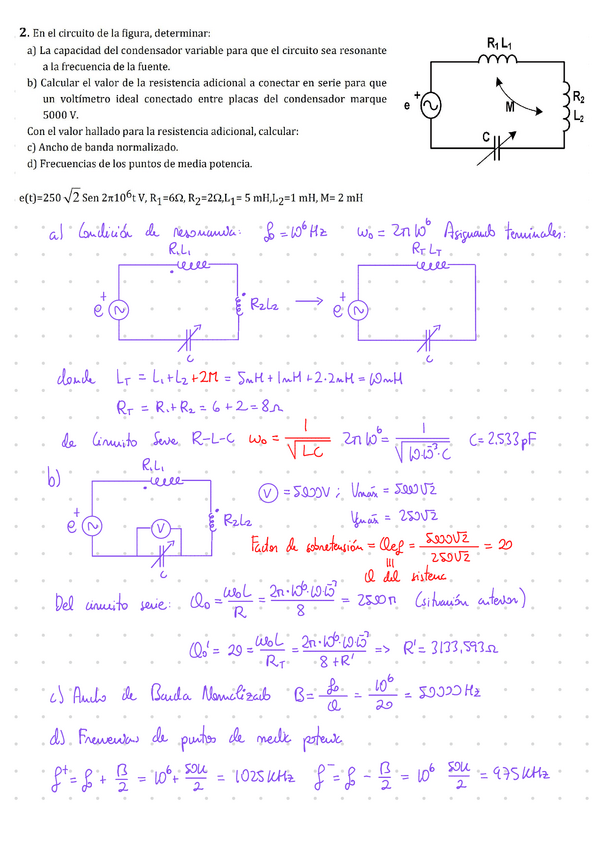 2. En el circuito de la figura, determinar:
a) La capacidad del condensador variable para que el circuito sea resonante
a la frecuencia de la fuente.
b) Calcular el valor de la resistencia adicional a conectar en serie para que
un voltímetro ideal conectado entre placas del condensador marque
5000 V.
Con el valor hallado para la resistencia adicional, calcular:
c) Ancho de banda normalizado.
d) Frecuencias de los puntos de media potencia.
R₁ L₁
+
e
M
R₂
L₂
C
e(t)=250 √2 Sen 2π10⁶t V, R₁=6Ω, R₂=2Ω,L₁= 5 mH,L₂=1 mH, M= 2 mH
a) Condición de resonancia: f₀ = 10⁶ Hz ω₀ = 2π 10⁶ Asignando terminales:
R₁L₁ R_T L_T
+ e R₂L₂ → + e
C C
donde L_T = L₁+L₂+2M = 5mH+1mH+2·2mH = 10mH
R_T = R₁+R₂ = 6+2 = 8Ω
de Circuito Serie R-L-C ω₀ = 1/√LC 2π 10⁶ = 1/√10·10⁻³·C C= 2.533pF
b) R₁L₁
V = 5000V ; Vmáx = 5000√2
+ e V R₂L₂ Vgmáx = 250√2
Factor de sobretensión = Qef = 5000√2/250√2 = 20
Q del sistema
Del circuito serie: Q₀ = ω₀L/R = 2π·10⁶·10·10⁻³/8 = 2500π (situación anterior)
Q₀' = 20 = ω₀L/R_T = 2π·10⁶·10·10⁻³/8+R' => R' = 3133,593Ω
c) Ancho de Banda Normalizado B = f₀/Q = 10⁶/20 = 50000 Hz
d) Frecuencias de puntos de media potencia
f⁺ = f₀ + B/2 = 10⁶ + 50k/2 = 1025 kHz f⁻ = f₀ - B/2 = 10⁶ 50k/2 = 975 kHz